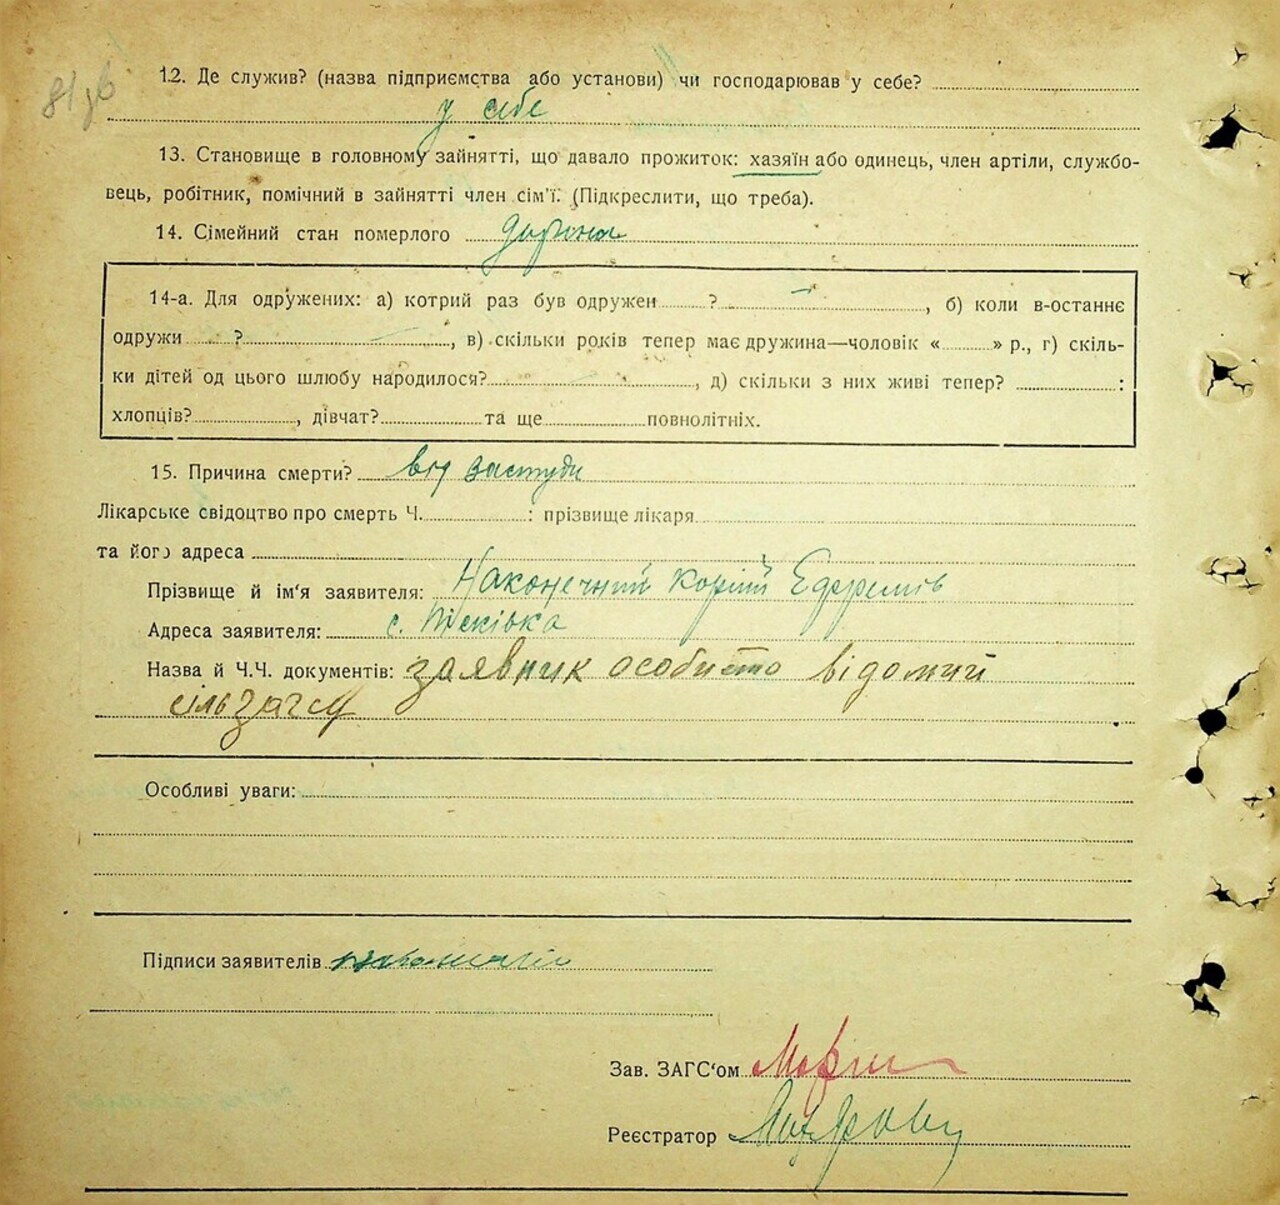 12. Де служив? (назва підприємства або установи) чи господарював у себе?
у себе
13. Становище в головному зайнятті, що давало прожиток: хазяїн або одинець, член артіли, службо-
вець, робітник, помічний в зайнятті член сім'ї. (Підкреслити, що треба).
14. Сімейний стан померлого
14-а. Для одружених: а) котрий раз був одружен ? , б) коли в-останнє
одружи ? , в) скільки років тепер має дружина—чоловік « » р., г) скіль-
ки дітей од цього шлюбу народилося? , д) скільки з них живі тепер? :
хлопців? , дівчат? та ще повнолітніх.
15. Причина смерти? від застуди
Лікарське свідоцтво про смерть Ч. : прізвище лікаря
та його адреса
Прізвище й ім'я заявителя: Наконечний Ефремів
Адреса заявителя: с. Пісківка
Назва й Ч.Ч. документів: заявник особисто відомий
сільзагсу
Особливі уваги:
Підписи заявителів
Зав. ЗАГС'ом
Реєстратор